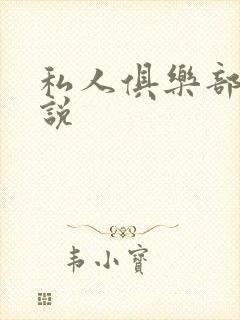 私人俱樂部
說
韦小寶